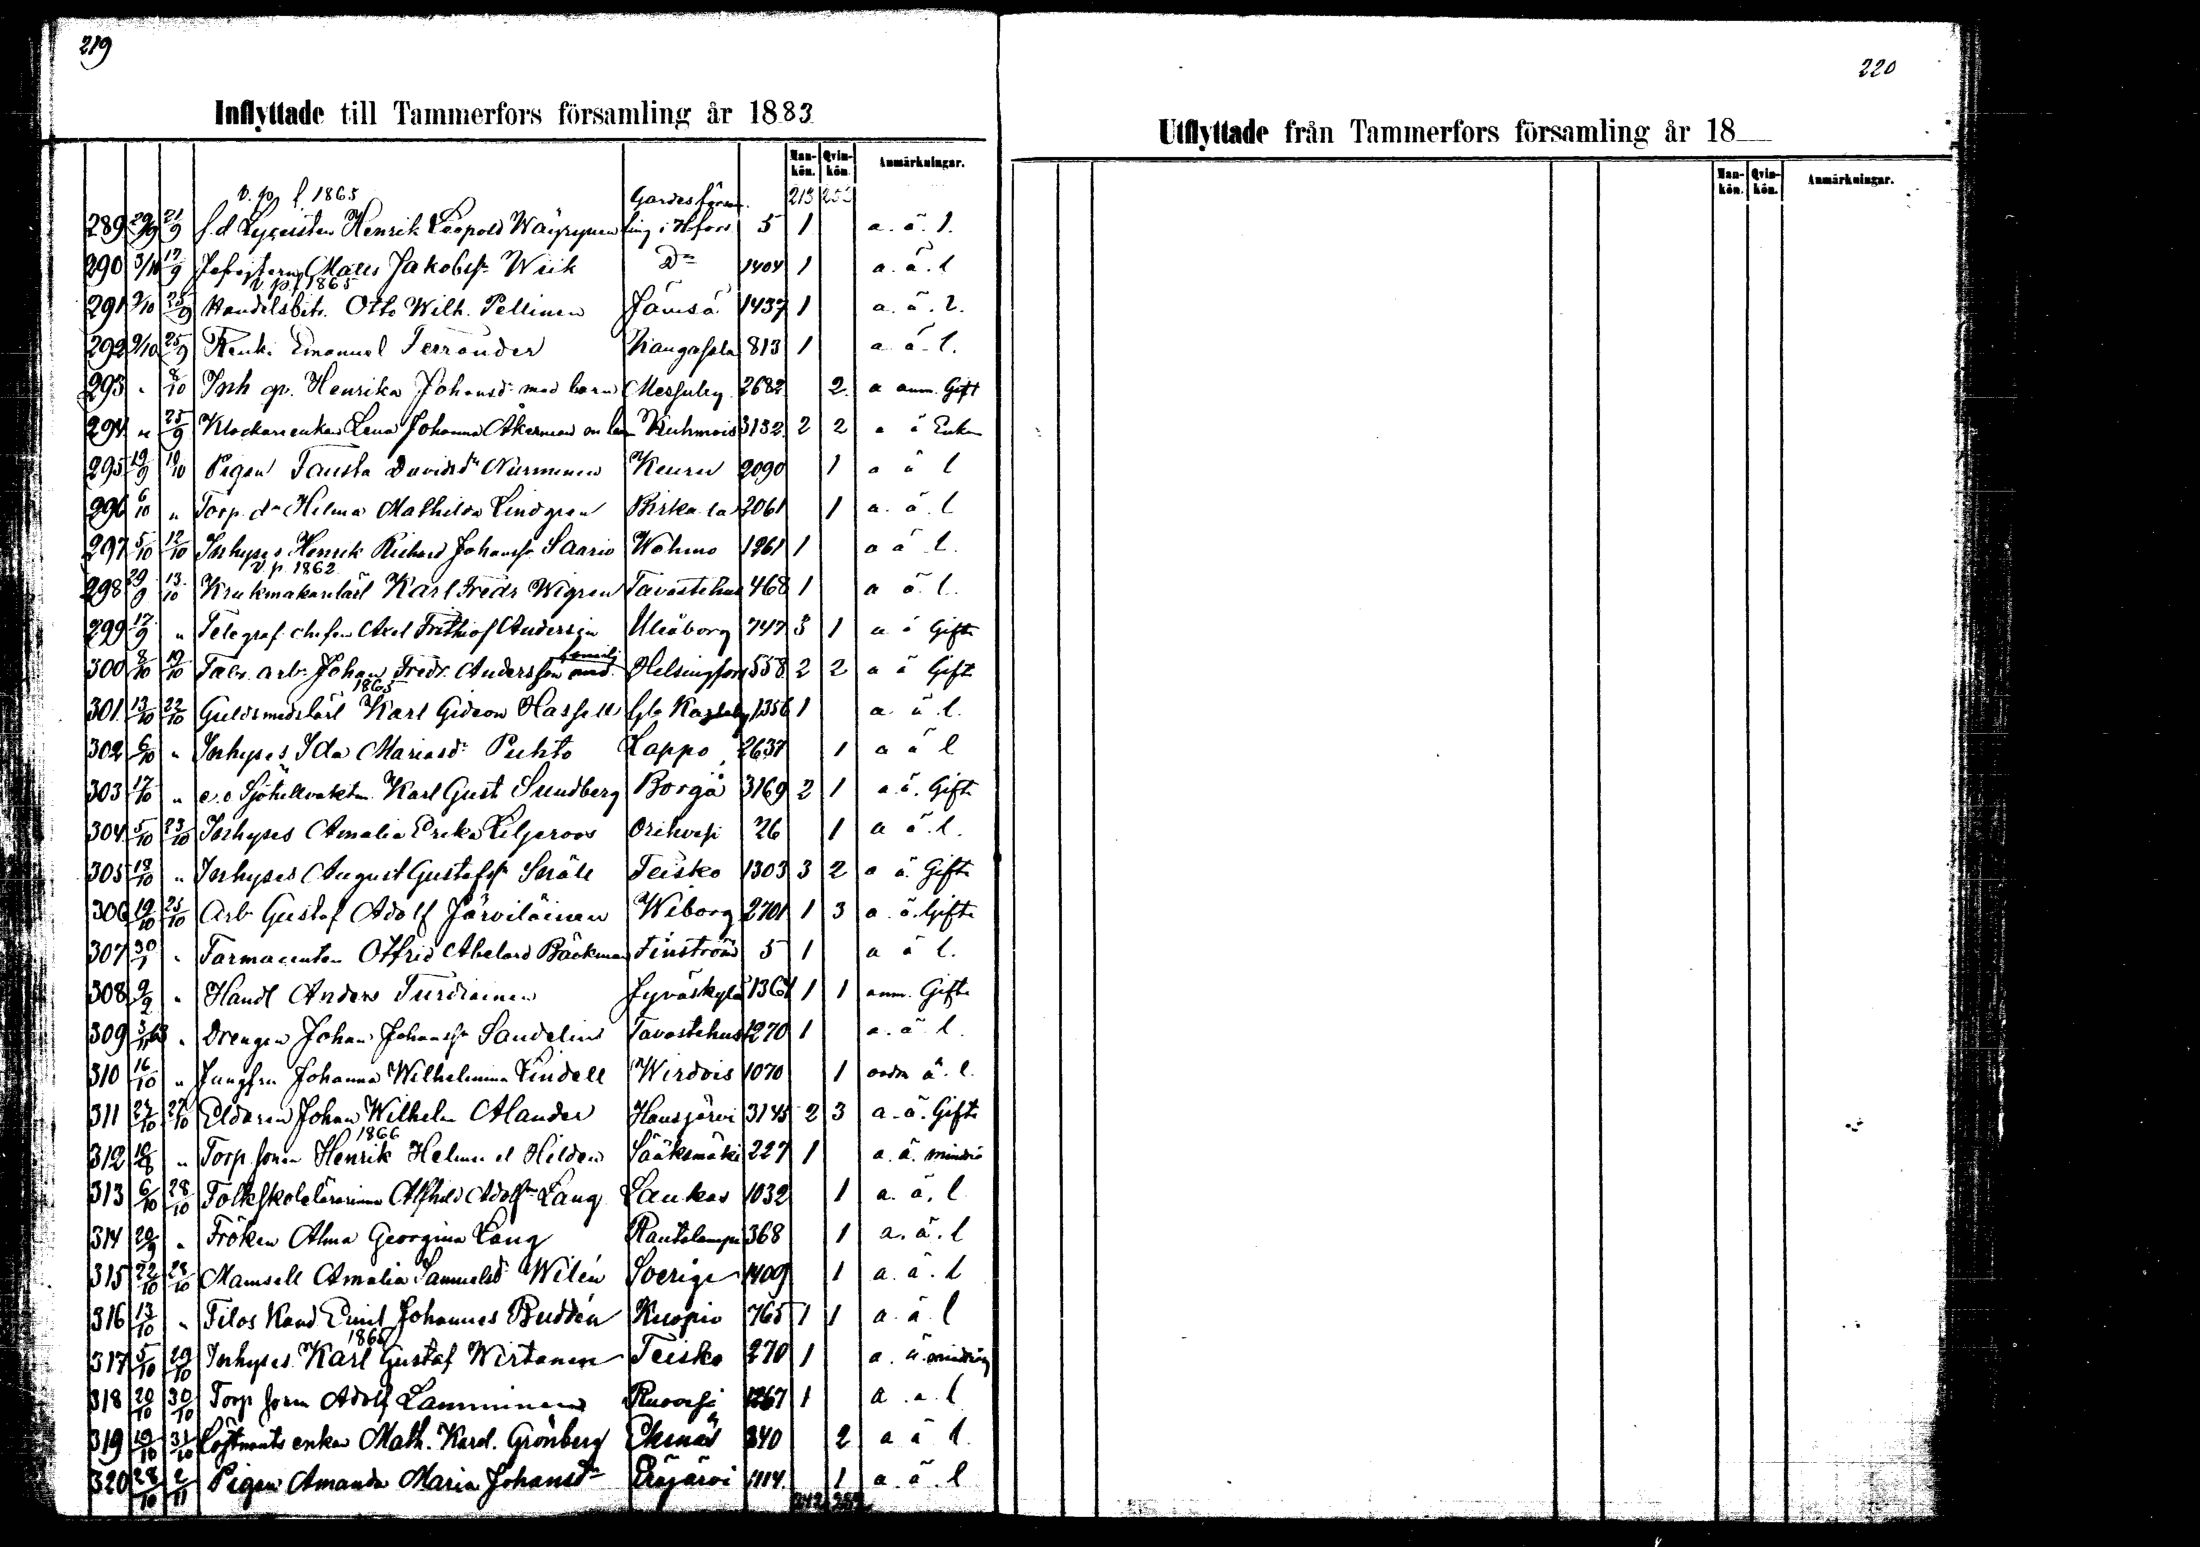 219
Inflyttade till Tammerfors församling år 1883
Mankön. Qvinkön. Anmärkningar.
v. p. f. 1865 Gardesförsam. 213 253
289 29/9 21/9 f.d Lyceisten Henrik Leopold Wäyrynen ling i Hfors 5 1 a. ä. l.
290 3/10 17/9 Matts Jakobsn Wiik Do 1404 1 a. ä. l
v p. f 1865
291 9/10 25/9 Handelsbitr. Otto Wilh. Pellinen Jämsä 1437 1 a. ä. l.
292 9/10 25/9 Renk. Emanuel Terrander Kangasala 813 1 a ä. l.
293 " 8/10 Inh qv. Henrika Johansdr med barn Messuby 2682 2 a anm. Gift
294 " 25/9 Klockareenkan Lena Johanna Åkerman Kuhmois 3132 2 2 a ä Enka
295 19/9 10/10 Pigan Fausta Davidsdr Nurminen Keuru 2090 1 a ä l
296 6/10 " Torp. dr Hilma Mathilda Lindgren Birkala 2061 1 a. ä. l
297 5/10 12/10 Inhyses Henrik Richard Johansn Saario Wåhmo 1261 1 a ä l.
v p. 1862
298 29/9 13/10 Krukmakarelärl Karl Fredr Wigren Tavastehus 468 1 a ä. l.
299 17/9 " Telegraf chefen Axel Frithiof Andersin Uleåborg 747 3 1 a ä Gifte
300 8/10 19/10 Fabr. arb. Johan Fredr. Andersson med familj Helsingfors 558 2 2 a ä Gift
1865
301 13/10 22/10 Guldsmedslärl Karl Gideon Hassell Gla Karleby 1356 1 a. ä. l.
302 6/10 " Inhyses Ida Mariasdr Puhto Lappo 2637 1 a ä l
303 17/10 " e. o Sjötullvaktm. Karl Gust Sundberg Borgå 3169 2 1 a. ä. Gifte
304 5/10 23/10 Inhyses Amalia Erika Liljeroos Orihvesi 26 1 a ä. l.
305 18/10 " Inhyses August Gustafsn Snäll Teisko 1303 3 2 a ä. Gifte
306 19/10 25/10 Arb Gustaf Adolf Järviläinen Wiborg 2701 1 3 a. ä. Gifte
307 30/1 " Farmaceuten Otfrid Abelard Bäckman Finström 5 1 a ä l.
308 9/2 " Handl Anders Turdiainen Jyväskylä 1361 1 1 anm. Gifte
309 " Drengen Johan Johansn Sandelin Tavastehus 1270 1 a. ä l.
310 16/10 " Jungfru Johanna Wilhelmina Lindell Wirdois 1070 1 andra ä. l.
311 27/10 Eldaren Johan Wilhelm Alander Hausjärvi 3145 2 3 a. ä. Gifte
1866
312 " Torp. sonen Henrik Helmer Hilden Sääksmäki 227 1 a. ä. mindre
313 6/10 28/10 Folkskolelärarinna Alfhild Adolfina Lang Laukas 1032 1 a. ä. l
314 20/9 " Fröken Alma Georgina Lang Rautalampi 368 1 a. ä. l
315 22/10 28/10 Mamsell Amalia Samuelsdr Wilén Sverige 1409 1 a. ä. l
316 13/10 " Filos Kand Emil Johannes Buddén Kuopio 765 1 1 a. ä. l
317 5/10 29/10 Inhyses Karl Gustaf Wirtanen Teisko 270 1 a. ä. mindrig
318 20/10 30/10 Torp sonen Adolf Lamminen Ruovesi 1267 1 a. a. l
319 19/10 31/10 Löjtnants enkan Math. Karol. Grönberg Ekenäs 340 2 a ä l.
320 28/10 2/11 Pigan Amanda Maria Johansdr Eräjärvi 1114 1 a. ä. l
242
220
Utflyttade från Tammerfors församling år 18
Mankön. Qvinkön. Anmärkningar.